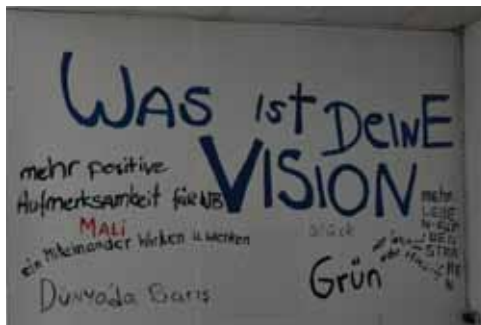 WAS ist DEINE
VISION
mehr positive
Aufmerksamkeit für NB
MALI
ein Miteinander Wirken u. Werken
Dünyada Barış
Glück
Grün
mehr